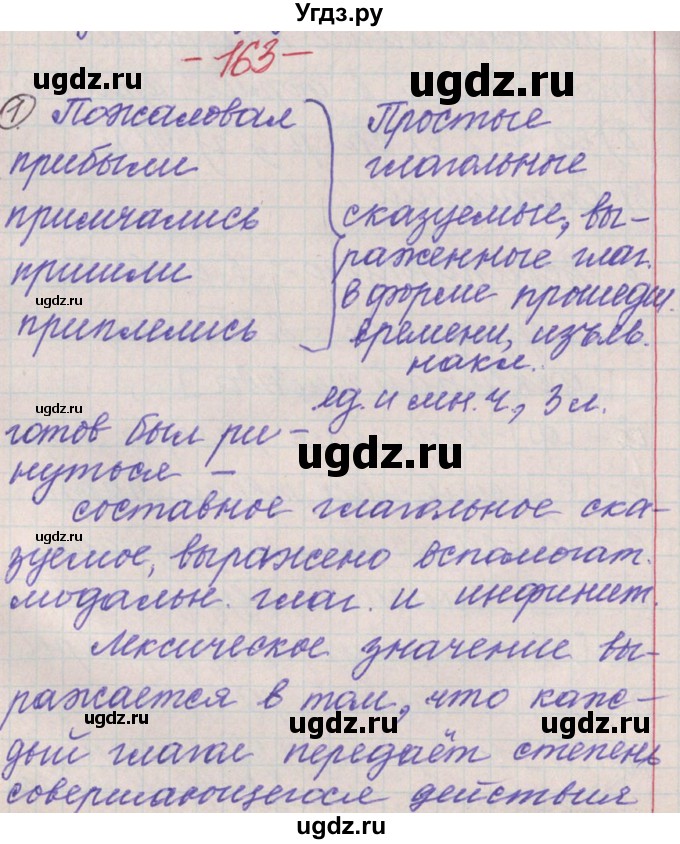 Угдз.ру
- 163 -
ugdz.ru ugdz.ru
1) Пожаловал
прибыли
примчались
пришли
приплелись
ugdz.ru
ugdz.ru
Простые
глагольные
сказуемые, вы-
раженные глаг.
в форме прошедш.
времени, изъяв.
накл.
ед. и мн. ч., 3 л.
ugdz.ru
готов был ри-
нуться -
ugdz.ru ugdz.ru
составное глагольное ска-
ugdz.ru
зуемое, выражено вспомогат.
модальн. глаг. и инфинит.
Лексическое значение вы-
ражается в том, что каж-
ugdz.ru ugdz.ru ugdz.ru
дый глагол передаёт степень
совершающегося действия
ugdz.ru